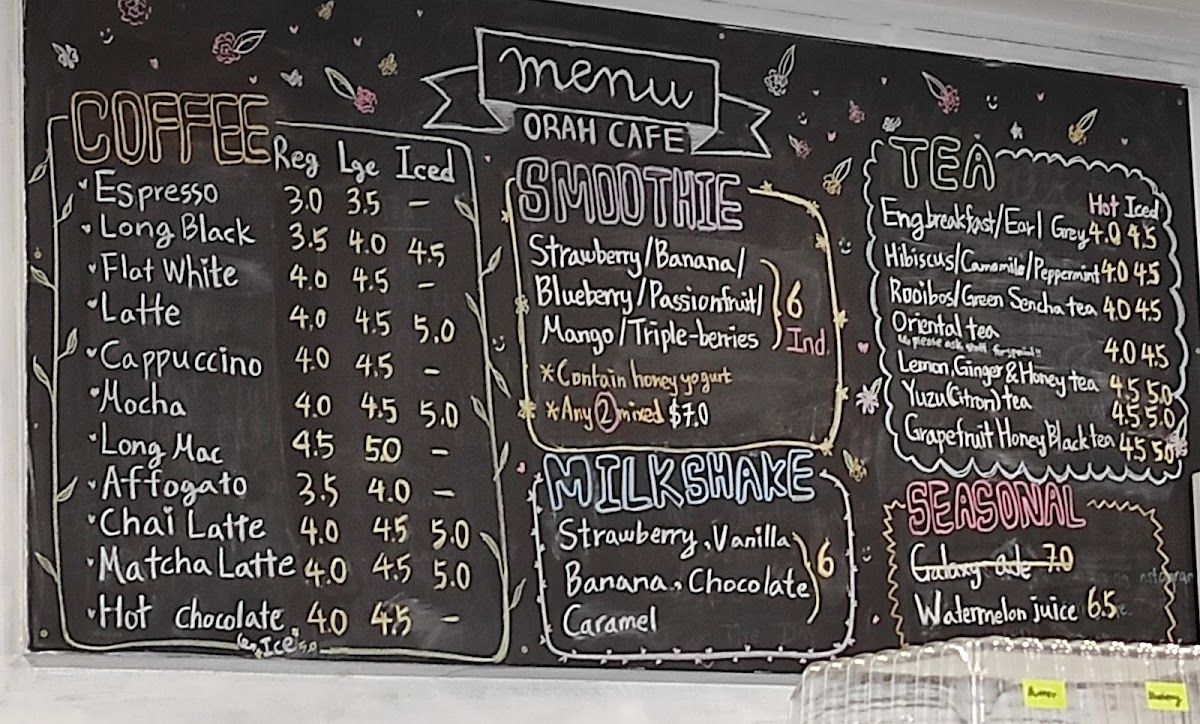 menu
ORAH CAFE
COFFEE
Reg Lge Iced
Espresso 3.0 3.5 –
Long Black 3.5 4.0 4.5
Flat White 4.0 4.5 –
Latte 4.0 4.5 5.0
Cappuccino 4.0 4.5 –
Mocha 4.0 4.5 5.0
Long Mac 4.5 5.0 –
Affogato 3.5 4.0 –
Chai Latte 4.0 4.5 5.0
Matcha Latte 4.0 4.5 5.0
Hot chocolate 4.0 4.5 –
Ice
SMOOTHIE
Strawberry/Banana/
Blueberry/Passionfruit/
Mango/Triple-berries
6
Ind.
*Contain honey yogurt
*Any 2 mixed $7.0
MILKSHAKE
Strawberry, Vanilla
Banana, Chocolate
Caramel
6
TEA
Hot Iced
Eng breakfast/Earl Grey 4.0 4.5
Hibiscus/Camomile/Peppermint 4.0 4.5
Rooibos/Green Sencha tea 4.0 4.5
Oriental tea 4.0 4.5
please ask
Lemon, Ginger & Honey tea 4.5 5.0
Yuzu(Citron) tea 4.5 5.0
Grapefruit Honey Black tea 4.5 5.0
SEASONAL
Galaxy-ade 7.0
Watermelon juice 6.5